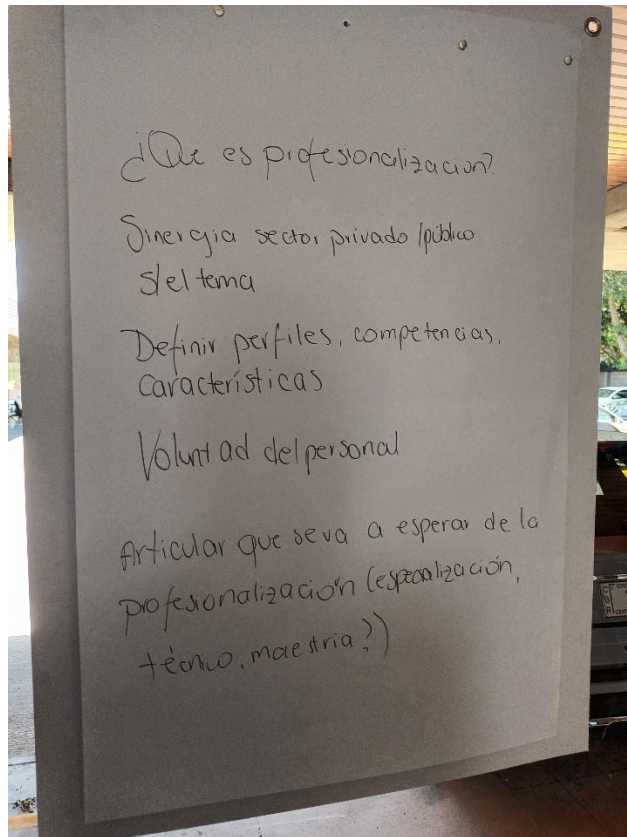 ¿Que es profesionalizacion?
Sinergia sector privado/público
s/el tema
Definir perfiles, competencias,
características
Voluntad del personal
Articular que se va a esperar de la
profesionalización (especialización,
técnico, maestria?)